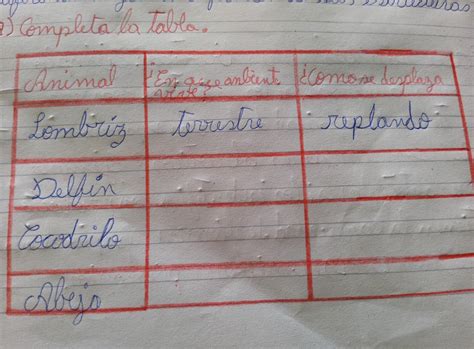 ) Completa la tabla.
Animal ¿En que ambiente ¿Como se desplaza
vive?
Lombríz terrestre reptando
Delfin
Cocodrilo
Abeja